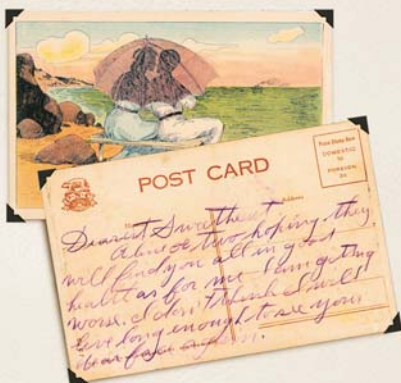 POST CARD
Place Stamp Here
DOMESTIC
1c
FOREIGN
2c
Address
Dearest Sweetheart
A line or two hoping they
will find you all in good
health as for me I am getting
worse. I don't think I will
live long enough to see your
dear face again.